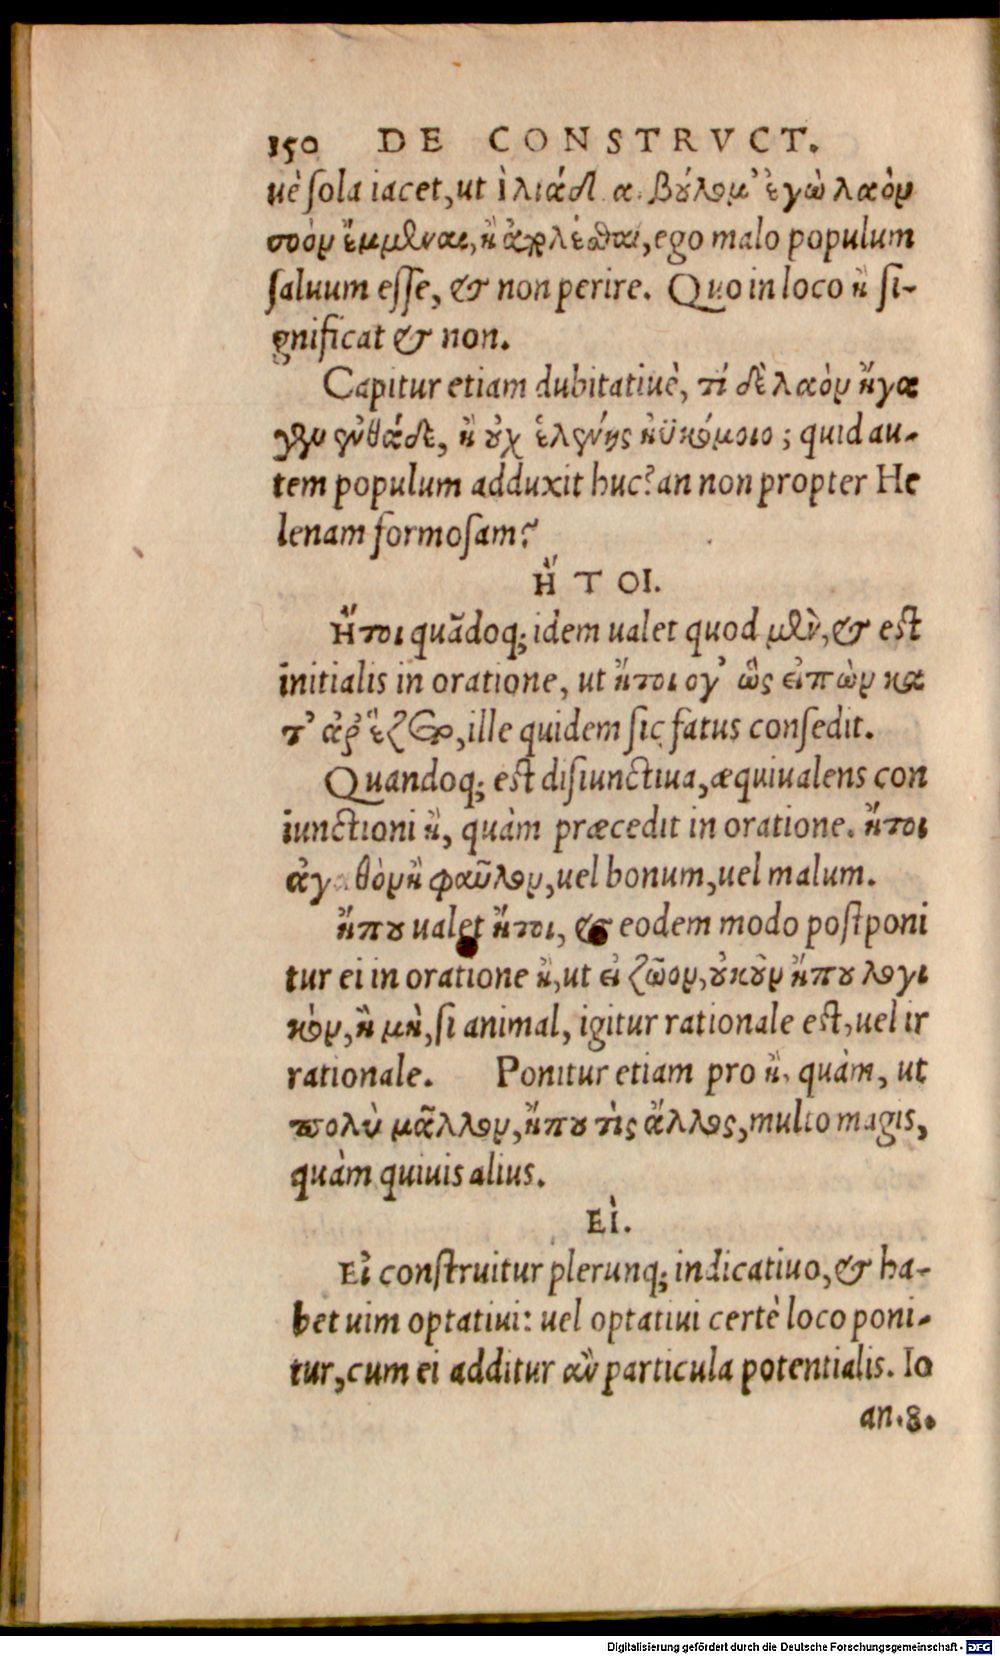 150 DE CONSTRVCT.
uè sola iacet, ut ἰλιάδι α. βόυλομ' ἐγὼ λαὸν
σόον ἔμμεναι, ἢ ἀπολέσθαι, ego malo populum
saluum esse, & non perire. Quo in loco ἢ si-
gnificat & non.
Capitur etiam dubitatiuè, τί δὲ λαὸν ἤγα
γεν ἐνθάδε, ἢ οὐχ ἑλένης ἠϋκόμοιο; quid au-
tem populum adduxit huc? an non propter He
lenam formosam?
ἬΤΟΙ.
Ἤτοι quãdoq; idem ualet quod μὲν, & est
initialis in oratione, ut ἤτοι ογ' ὣς ἐιπὼν κα
τ' ἀρ' ἕζετο, ille quidem sic fatus consedit.
Quandoq; est disiunctiua, æquiualens con
iunctioni ἢ, quàm præcedit in oratione. ἤτοι
ἀγαθὸν ἢ φαῦλον, uel bonum, uel malum.
ἤπου ualet ἤτοι, & eodem modo postponi
tur ei in oratione ἢ, ut ἐι ζῶον, ὀυκοῦν ἤπου λογι
κὸν, ἢ μὴ, si animal, igitur rationale est, uel ir
rationale. Ponitur etiam pro ἢ, quàm, ut
πολὺ μᾶλλον, ἤπου τὶς ἄλλος, multo magis,
quàm quiuis alius.
ΕἸ.
Εἰ construitur plerunq; indicatiuo, & ha-
bet uim optatiui: uel optatiui certè loco poni-
tur, cum ei additur ἂν particula potentialis. Io
an.8.
Digitalisierung gefördert durch die Deutsche Forschungsgemeinschaft - DFG